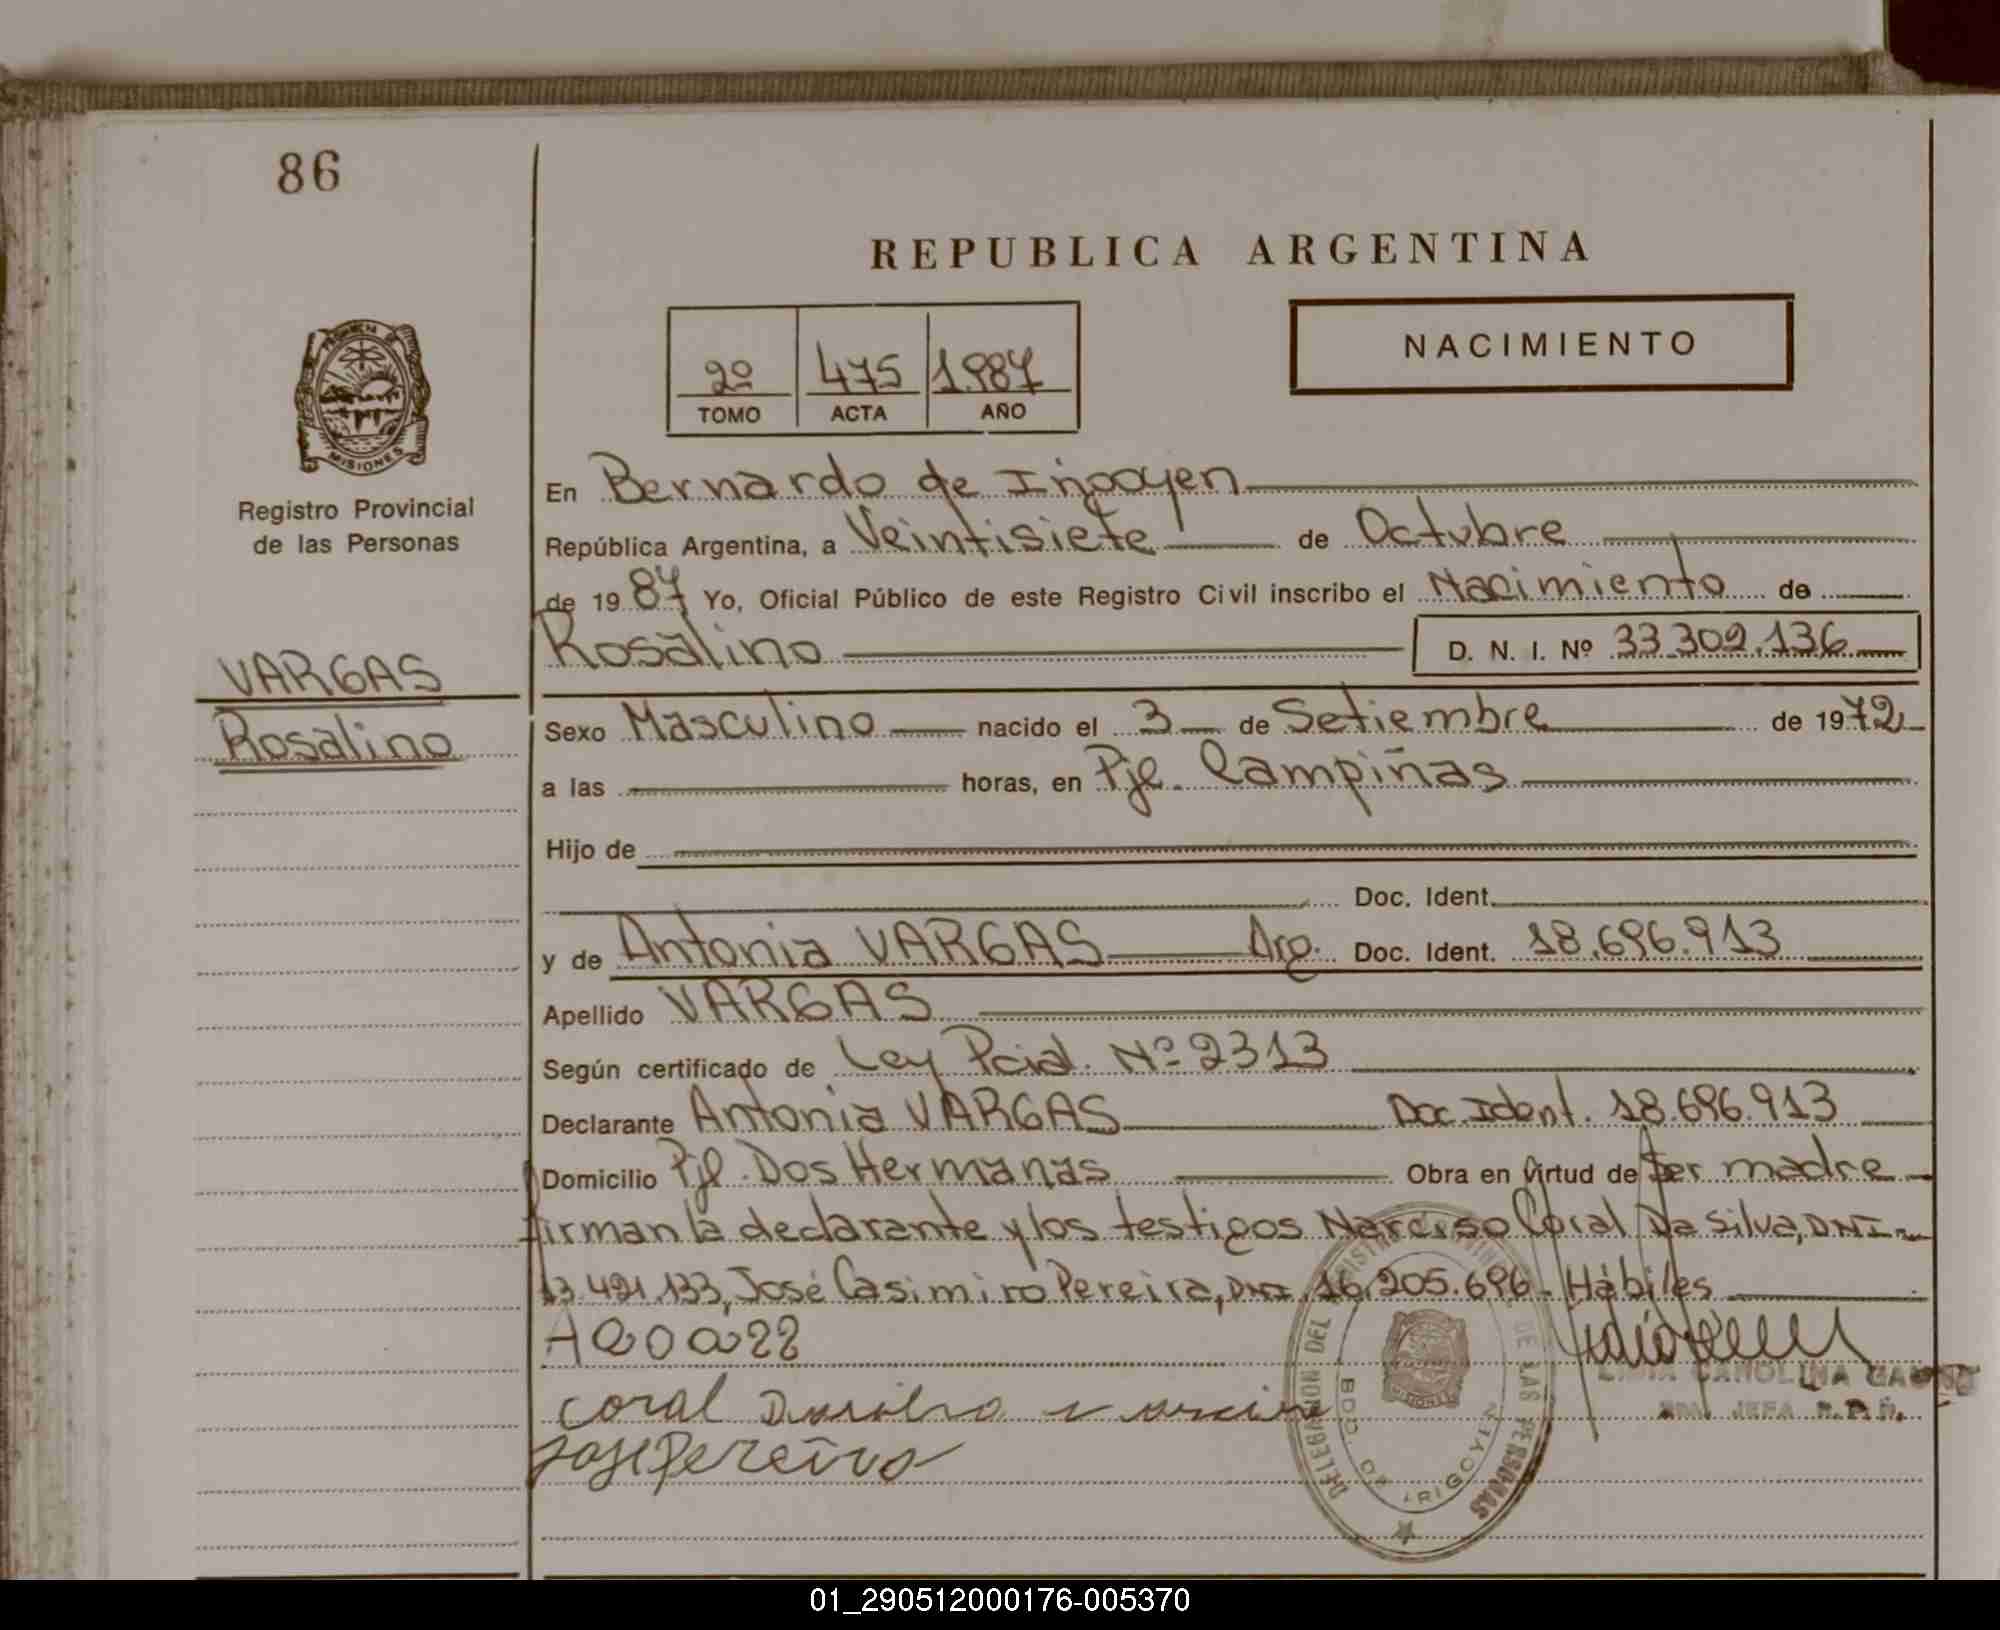 86
REPUBLICA ARGENTINA
2º 475 1987
TOMO ACTA AÑO
NACIMIENTO
MISIONES
Registro Provincial
de las Personas
En Bernardo de Irigoyen
República Argentina, a Veintisiete de Octubre
de 1987 Yo, Oficial Público de este Registro Civil inscribo el Nacimiento de
Rosalino D. N. I. Nº 33.302.136
VARGAS
Rosalino
Sexo Masculino nacido el 3 de Setiembre de 1972
a las horas, en Pje. Campiñas
Hijo de
Doc. Ident.
y de Antonia VARGAS Arg. Doc. Ident. 18.696.913
Apellido VARGAS
Según certificado de Ley Pcial. Nº 2313
Declarante Antonia VARGAS Doc. Ident. 18.696.913
Domicilio Pje. Dos Hermanas Obra en virtud de ser madre
firman la declarante y los testigos Narciso Coral Da Silva, DNI
13.421.133, José Casimiro Pereira, DNI. 16.205.696. Hábiles
CAROLINA
JEFA R.P.P.
coral
jose Pereira
DELEGACION DEL REGISTRO PROVINCIAL DE LAS PERSONAS
BDO. DE IRIGOYEN
MISIONES
01_290512000176-005370